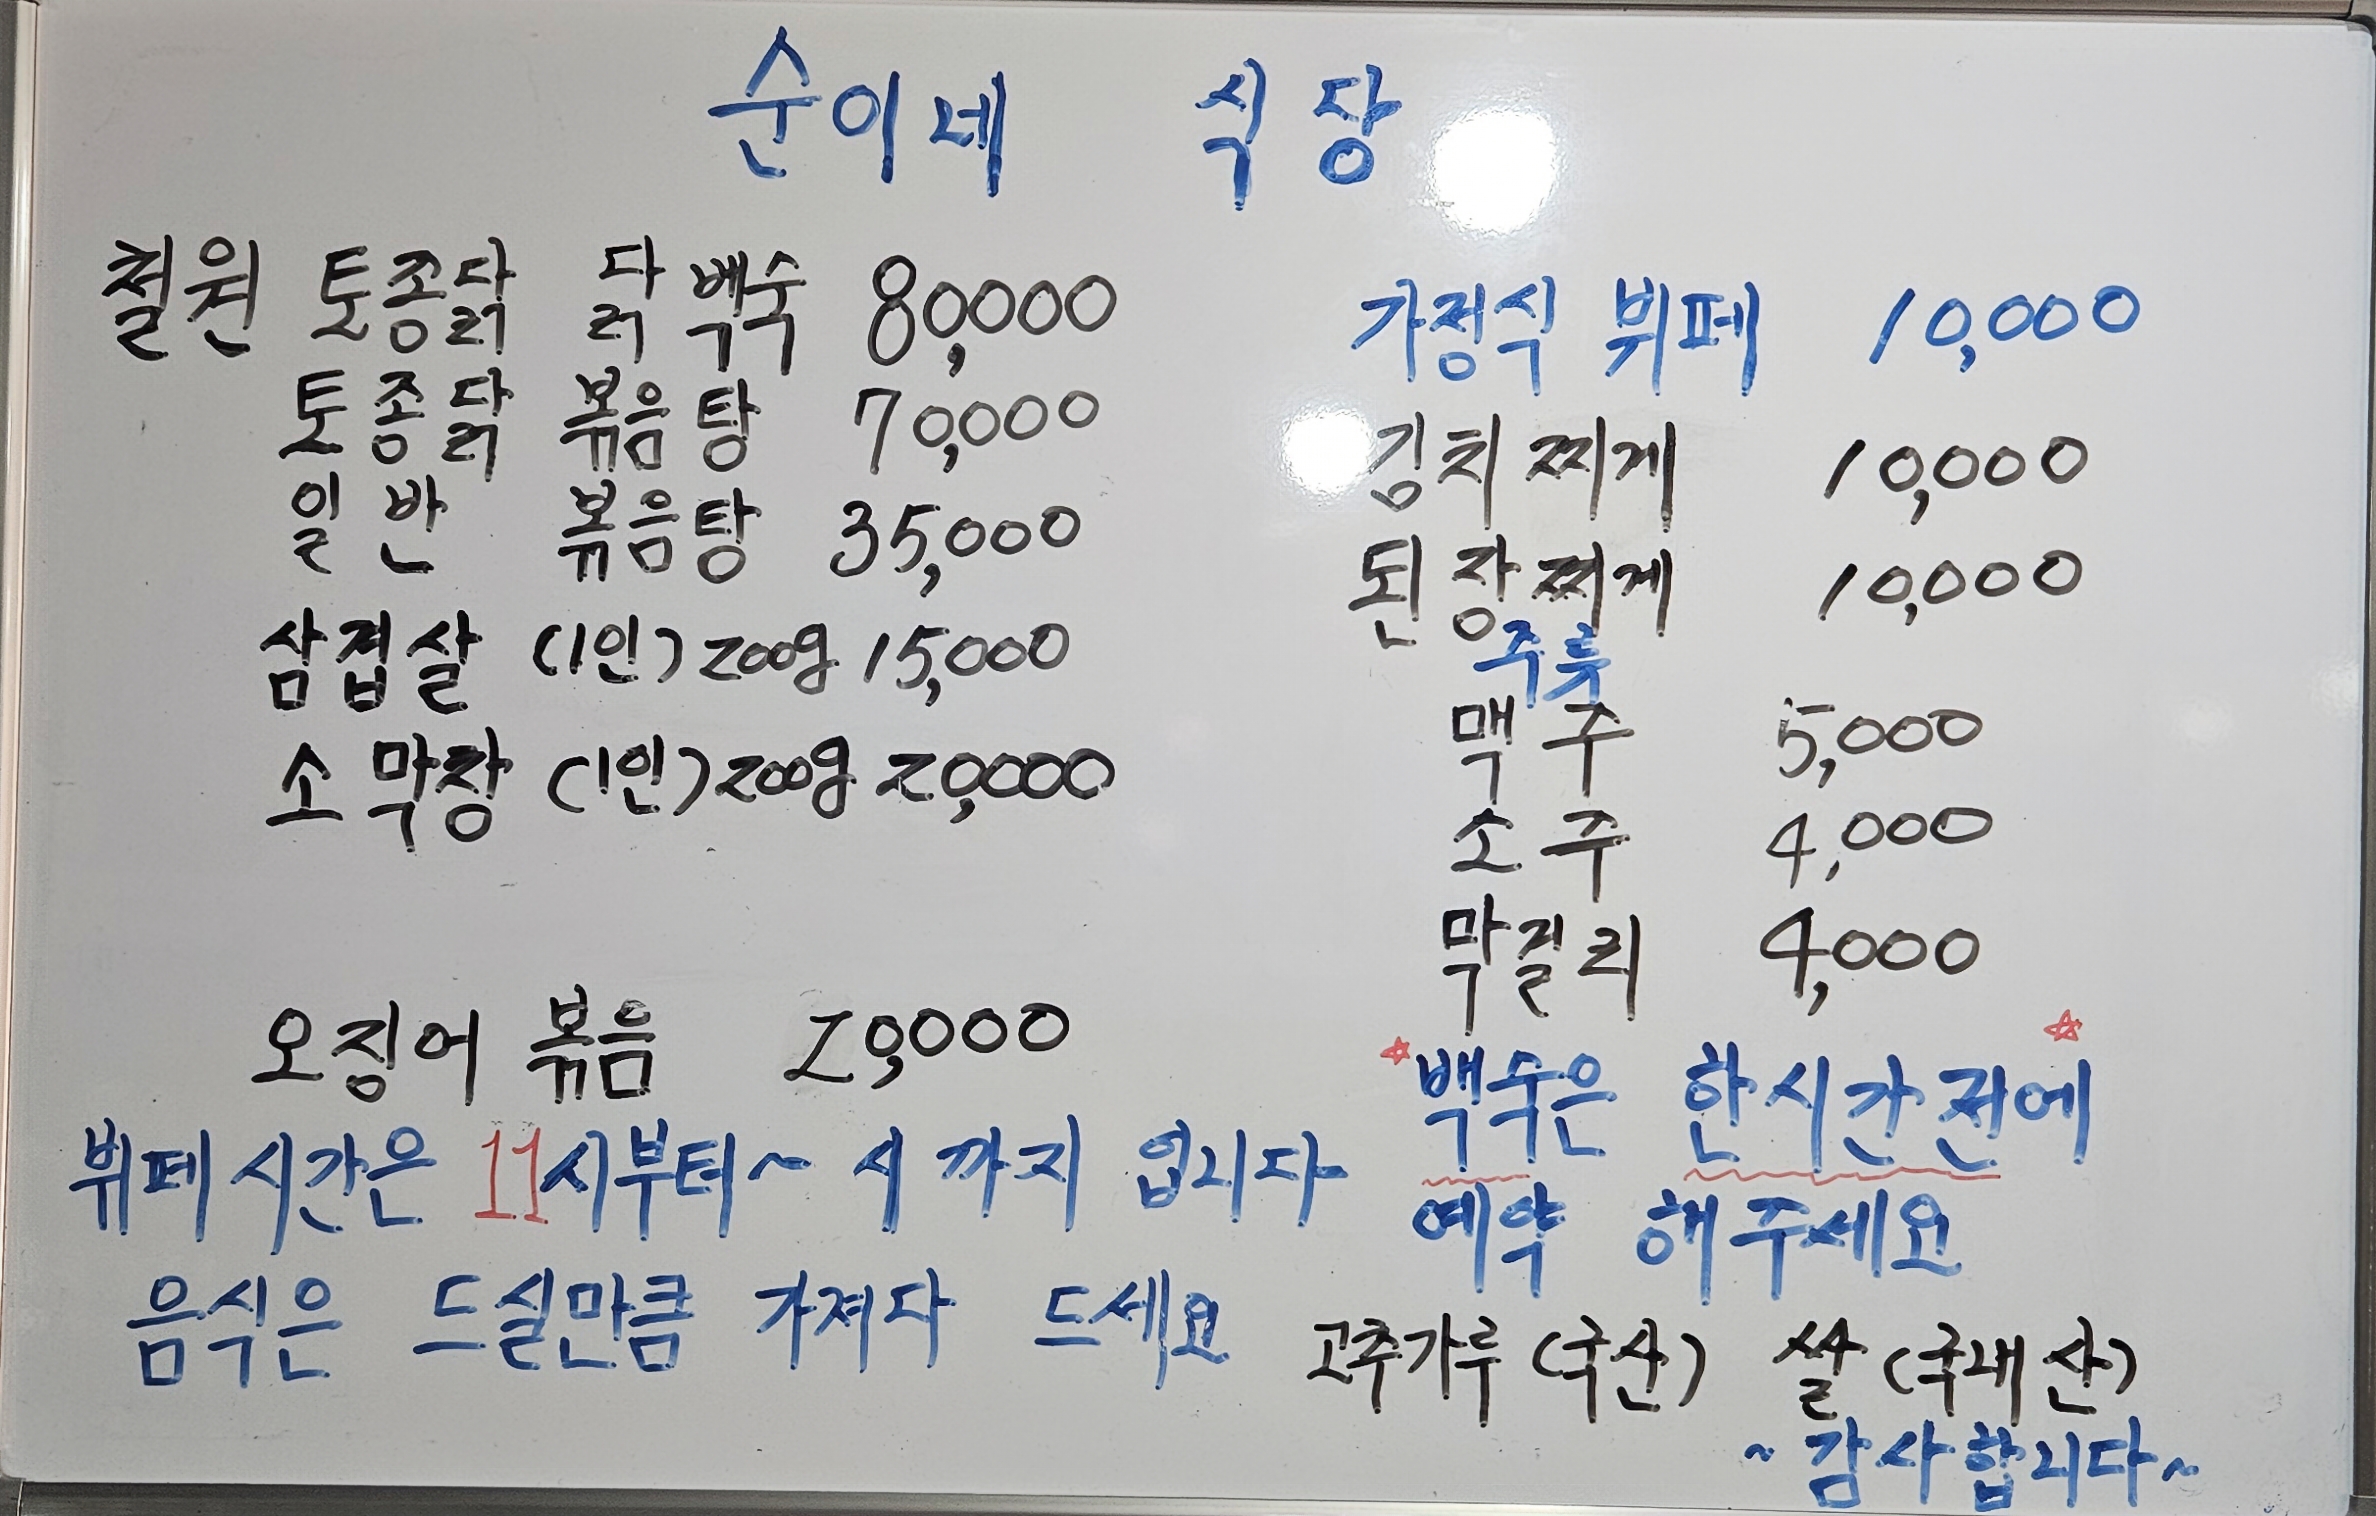 순이네 식당
철원 토종닭 닭백숙 80,000
토종닭 볶음탕 70,000
일반 볶음탕 35,000
삼겹살 (1인) 200g 15,000
소막창 (1인) 200g 20,000
오징어 볶음 20,000
뷔페시간은 11시부터~ 시까지 입니다
음식은 드실만큼 가져다 드세요
가정식 뷔페 10,000
김치찌게 10,000
된장찌게 10,000
주류
맥주 5,000
소주 4,000
막걸리 4,000
☆백숙은 한시간전에☆
예약 해주세요
고추가루 (국산) 쌀 (국내산)
~감사합니다~